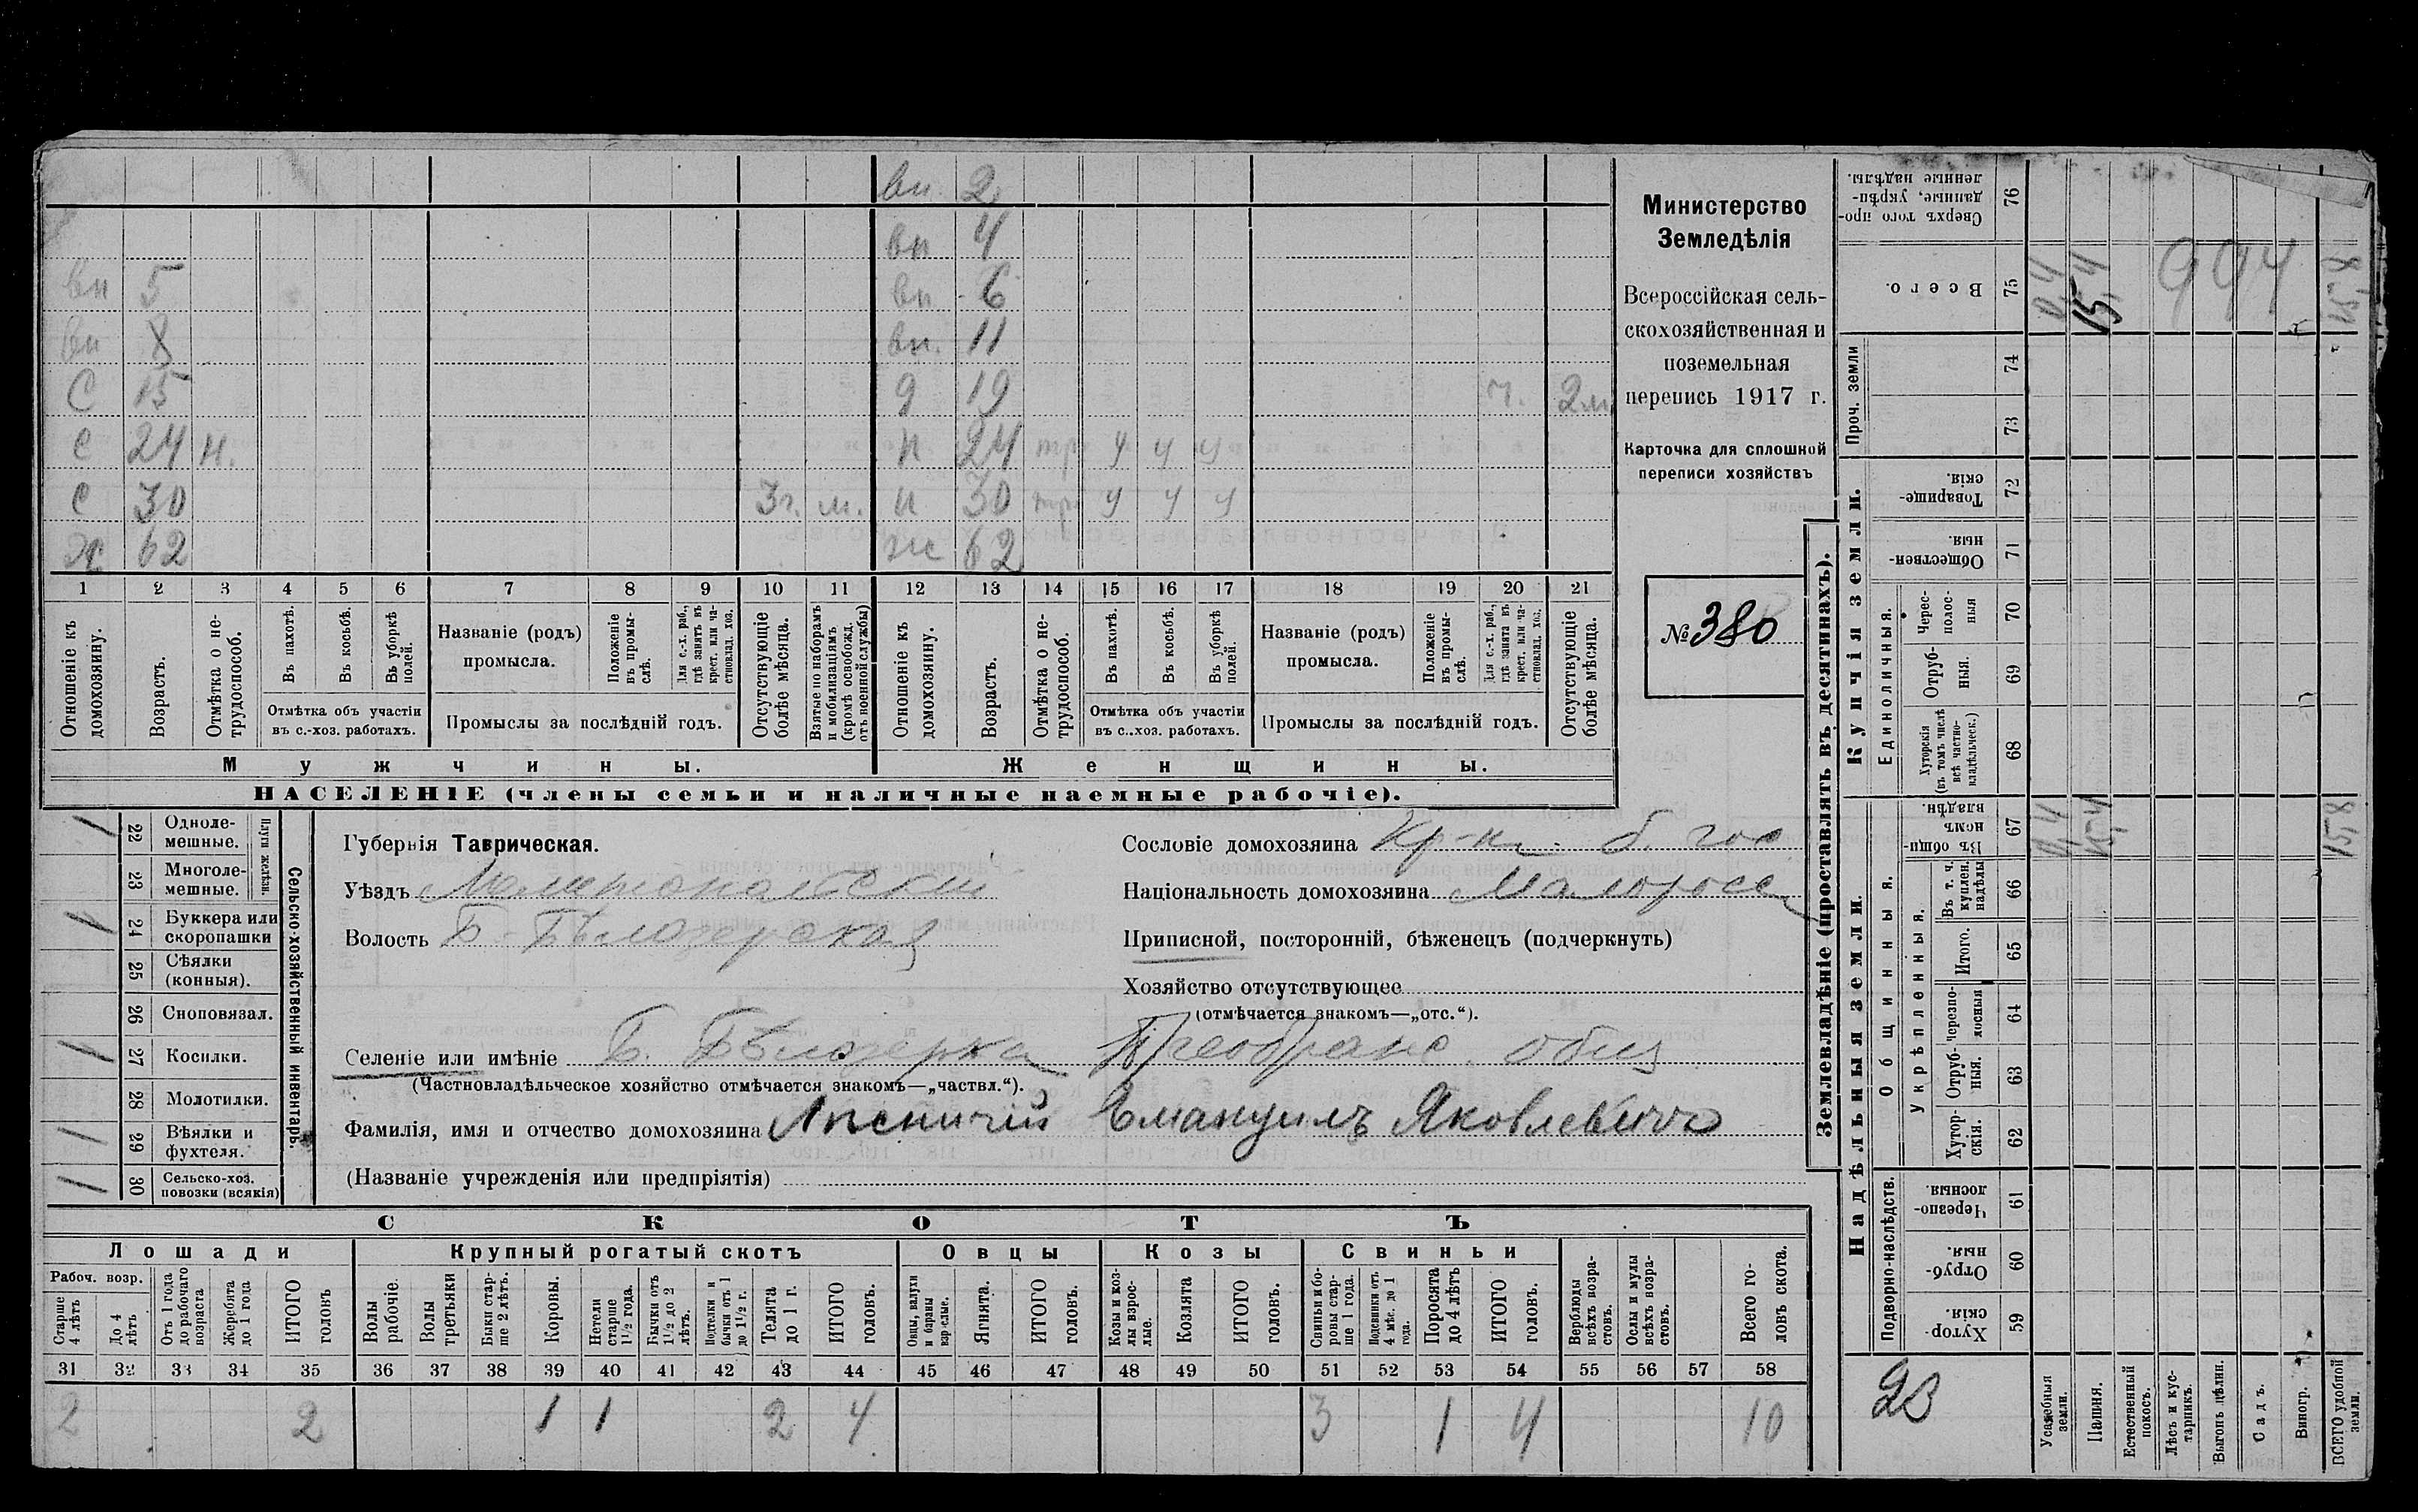 вн. 2
вн 4
вн 5 вн 6
вн 8 вн. 11
С 15 д 19 ч. 2 м
с 24 н. н 24 тр у у у
с 30 3 г. м. н 30 тр у у у
х 62 ж 62
1 2 3 4 5 6 7 8 9 10 11 12 13 14 15 16 17 18 19 20 21
Отношеніе къ домохозяину.
Возрастъ.
Отмѣтка о нетрудоспособ.
Въ пахотѣ.
Въ косьбѣ.
Въ уборкѣ полей.
Отмѣтка объ участіи въ с.-хоз. работахъ.
Названіе (родъ) промысла.
Положеніе въ промыслѣ.
Для с.-х. раб., гдѣ занятъ въ крест. или частновлад. хоз.
Промыслы за послѣдній годъ.
Отсутствующіе болѣе мѣсяца.
Взятые по наборамъ и мобилизаціямъ (кромѣ освобожд. отъ военной службы)
Отношеніе къ домохозяину.
Возрастъ.
Отмѣтка о нетрудоспособ.
Въ пахотѣ.
Въ косьбѣ.
Въ уборкѣ полей.
Отмѣтка объ участіи въ с.-хоз. работахъ.
Названіе (родъ) промысла.
Положеніе въ промыслѣ.
Для с.-х. раб., гдѣ занята въ крест. или частновлад. хоз.
Промыслы за послѣдній годъ.
Отсутствующіе болѣе мѣсяца.
Мужчины. Женщины.
НАСЕЛЕНІЕ (члены семьи и наличные наемные рабочіе).
Министерство
Земледѣлія
Всероссійская сель-
скохозяйственная и
поземельная
перепись 1917 г.
Карточка для сплошной
переписи хозяйствъ
№ 380
Сельско-хозяйственный инвентарь.
Плуги желѣзн.
1 22 Одноле-мешные.
23 Многоле-мешные.
1 24 Буккера или скоропашки
25 Сѣялки (конныя).
26 Сноповязал.
1 27 Косилки.
28 Молотилки.
1 29 Вѣялки и фухтеля.
1 30 Сельско-хоз. повозки (всякія)
Губернія Таврическая.
Уѣздъ Мелитопольскій
Волость Б-Бѣлозерская
Сословіе домохозяина Кр-нъ б. гос
Національность домохозяина Малоросс
Приписной, посторонній, бѣженецъ (подчеркнуть)
Хозяйство отсутствующее
(отмѣчается знакомъ—„отс.“).
Селеніе или имѣніе Б. Бѣлозерка Преображ. общ
(Частновладѣльческое хозяйство отмѣчается знакомъ—„частвл.“).
Фамилія, имя и отчество домохозяина Емануилъ Яковлевичъ
(Названіе учрежденія или предпріятія)
СКОТЪ
Лошади Крупный рогатый скотъ Овцы Козы Свиньи
Рабоч. возр.
Старше 4 лѣтъ
До 4 лѣтъ
Отъ 1 года до рабочаго возраста
Жеребята до 1 года
ИТОГО головъ
Волы рабочіе.
Волы третьяки
Быки старше 2 лѣтъ.
Коровы.
Нетели старше 1½ года.
Бычки отъ 1½ до 2 лѣтъ.
Подтелки и бычки отъ 1 до 1½ г.
Телята до 1 г.
ИТОГО головъ.
Овцы, валухи и бараны взрослые.
Ягнята.
ИТОГО головъ.
Козы и козлы взрослые.
Козлята
ИТОГО головъ.
Свиньи и боровы старше 1 года.
Подсвинки отъ 4 мѣс. до 1 года.
Поросята до 4 лѣтъ
ИТОГО головъ.
Верблюды всѣхъ возрастовъ.
Ослы и мулы всѣхъ возрастовъ.
Всего головъ скота.
31 32 33 34 35 36 37 38 39 40 41 42 43 44 45 46 47 48 49 50 51 52 53 54 55 56 57 58
2 2 1 1 2 4 3 1 4 10
Землевладѣніе (проставлять въ десятинахъ).
Надѣльныя земли. Купчія земли. Проч. земли
Подворно-наслѣдств. Общинныя. Укрѣпленныя. Единоличныя.
Сверхъ того проданные, укрѣпленные надѣлы. 76
Всего. 75 0,4 15,4 15,8
994
74
73
Товарищескія. 72
Общественныя. 71
Чересполосныя 70
Отрубныя. 69
Хуторскія (въ томъ числѣ всѣ частновладѣльческ.) 68
Въ общинномъ владѣн. 67 0,4 15,4 15,8
Въ т. ч. куплен. надѣлы 66
Итого. 65
Черезполосныя 64
Отрубныя. 63
Хуторскія. 62
Черезполосныя. 61
Отрубныя. 60
Хуторскія. 59
23
Усадебныя земли.
Пашня.
Естественный покосъ.
Лѣсъ и кустарникъ.
Выгонъ цѣлин.
Садъ.
Виногр.
ВСЕГО удобной земли.